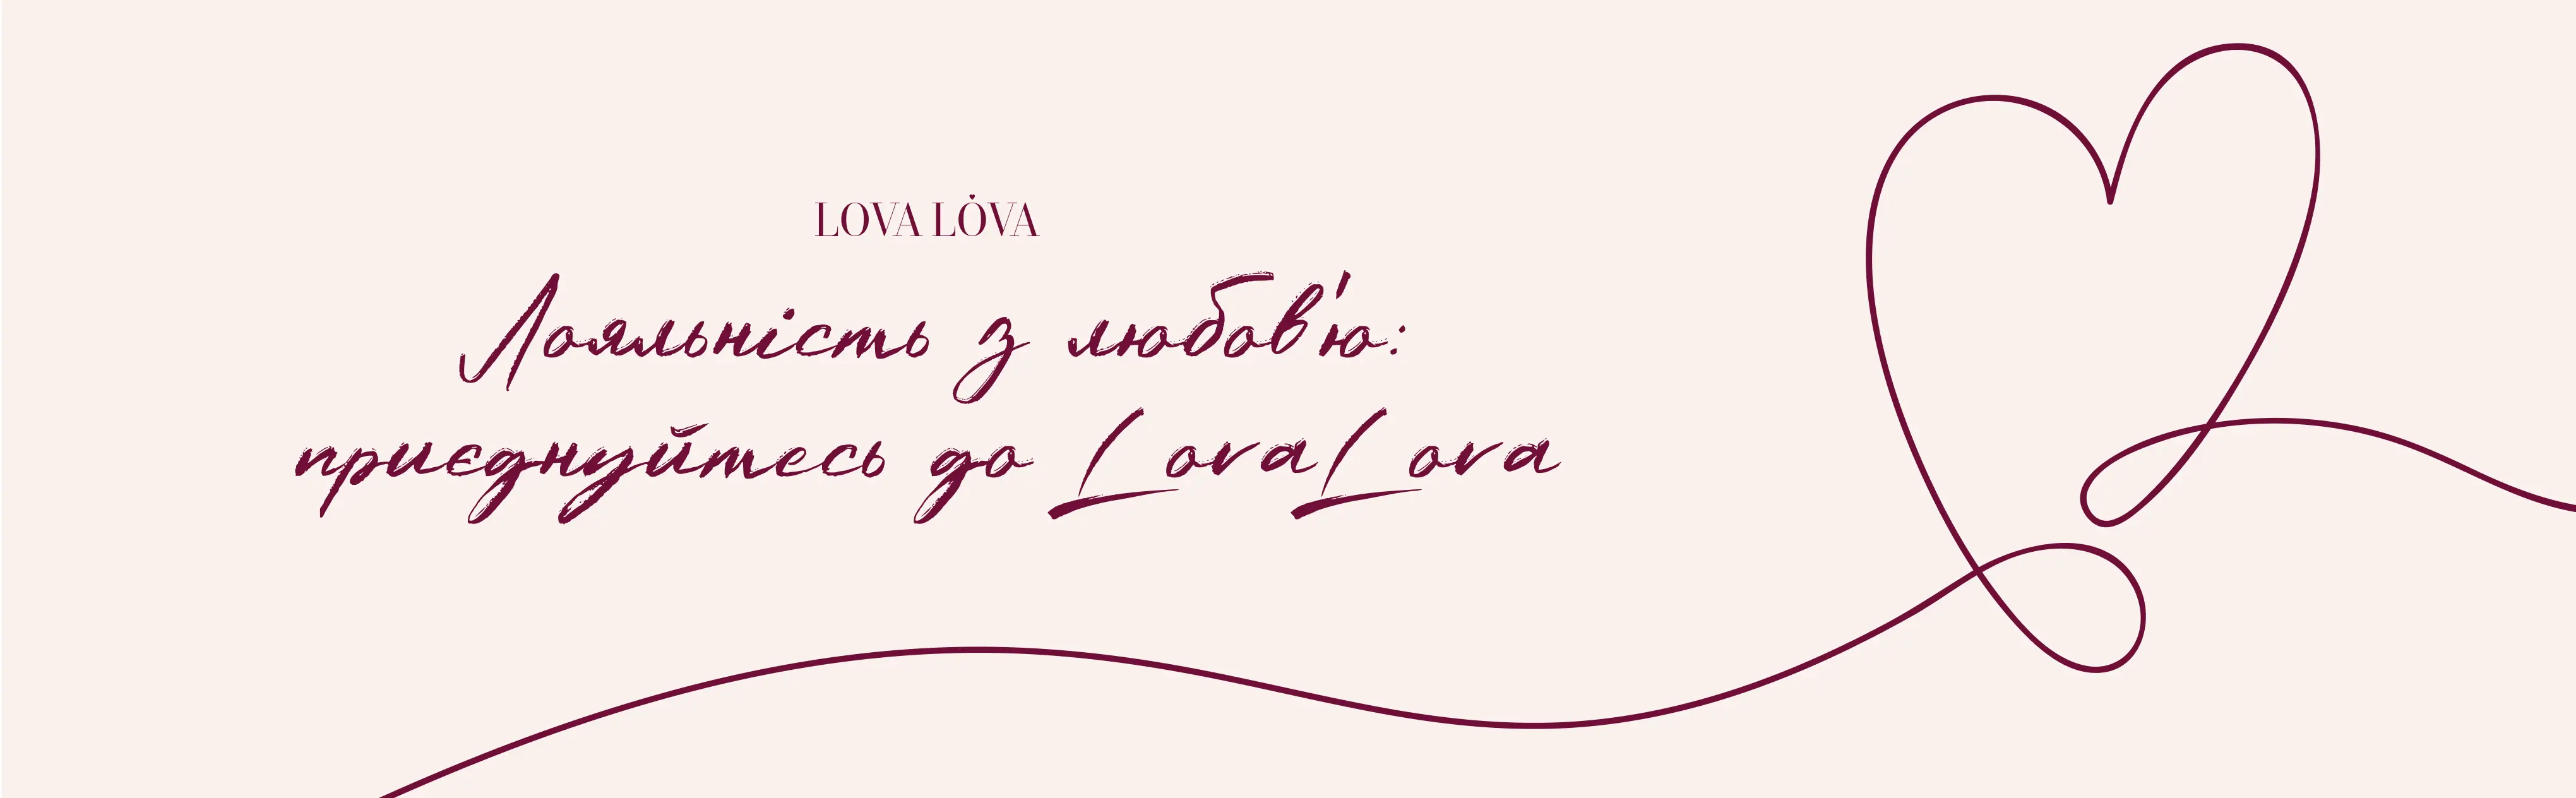 LOVA LOVA
Лояльність з любов'ю:
приєднуйтесь до LovaLova